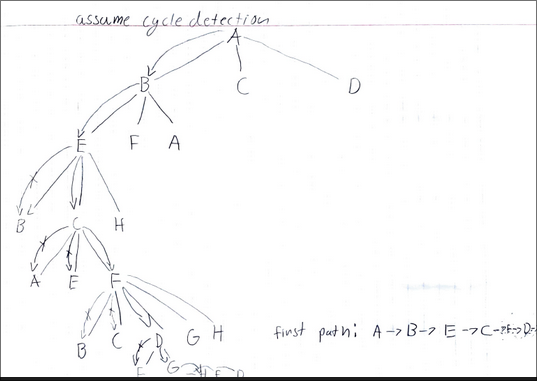 assume cycle detection
A
B C D
E F A
B C H
A E F
B C D G H
first path: A→B→E→C→F→D→